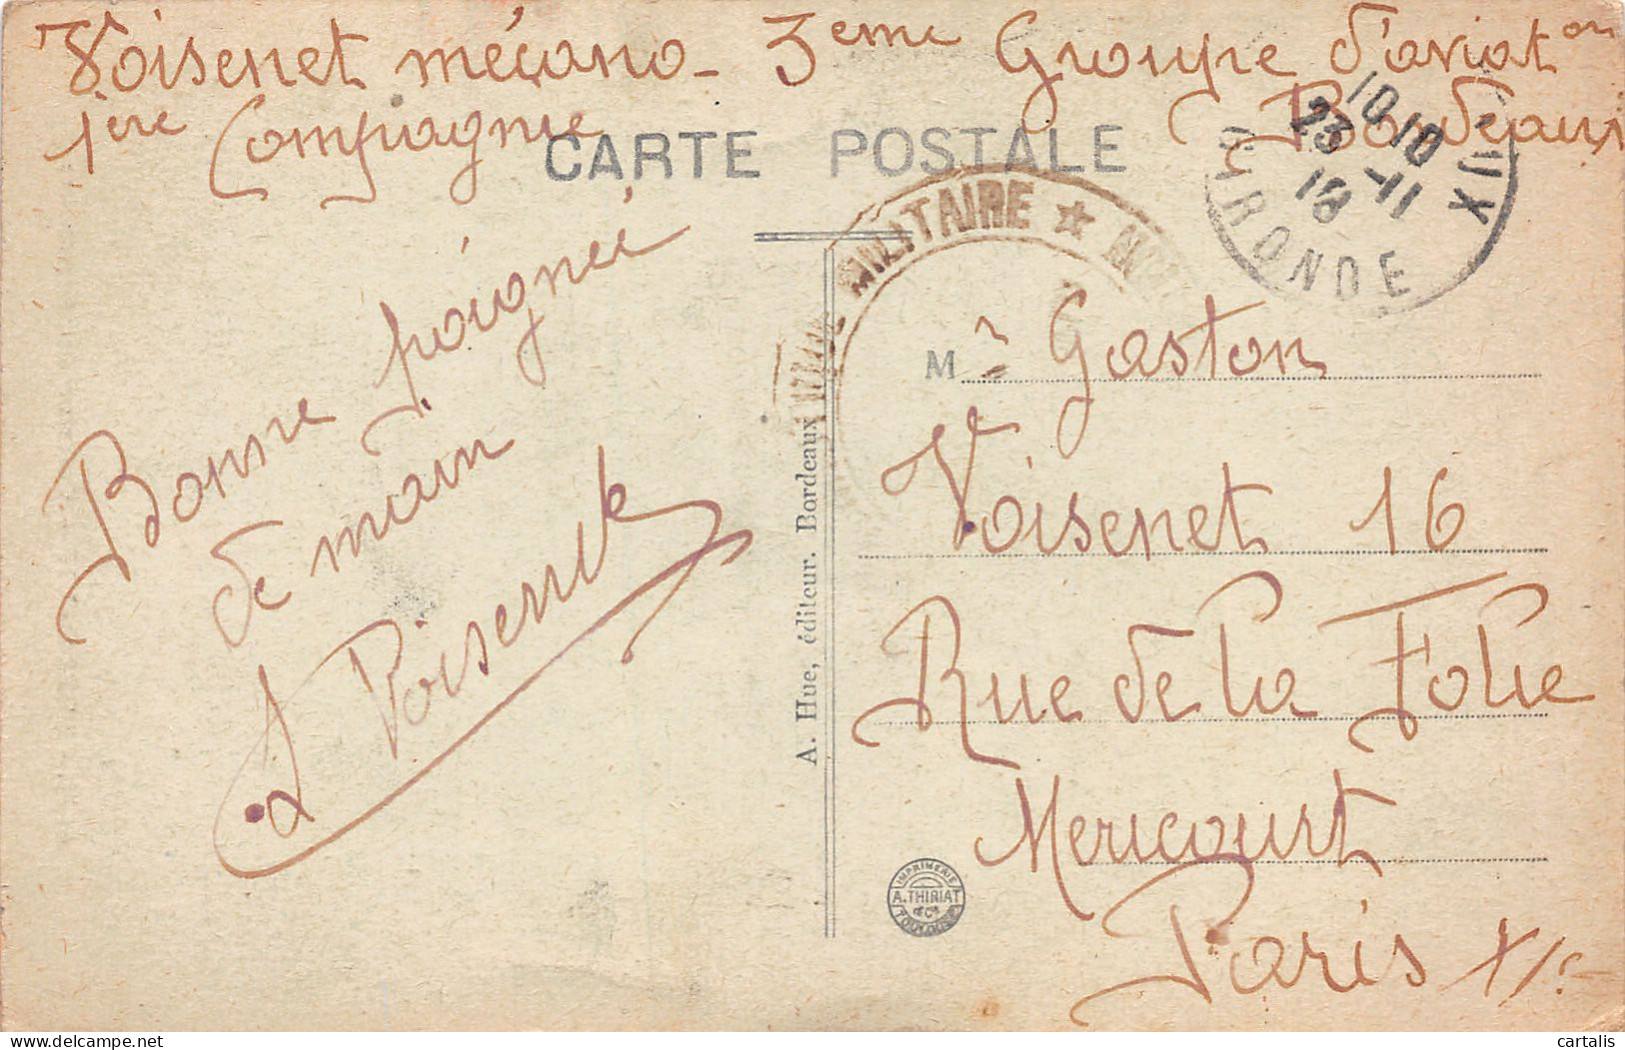 Voisenet mécano - 3eme Groupe d'aviaton
1ère Compagnie Bordeaux
CARTE POSTALE
MILITAIRE ★
10 10
23 -11
18
GIRONDE
Bonne poignée
de main
Voisenet
A. Hue, éditeur. Bordeaux
M r Gaston
Voisenet 16
Rue de la Folie
Mericourt
Paris XIe
IMPRIMERIE
A. THIRIAT
& Cie
TOULOUSE
cartalis
delcampe.net